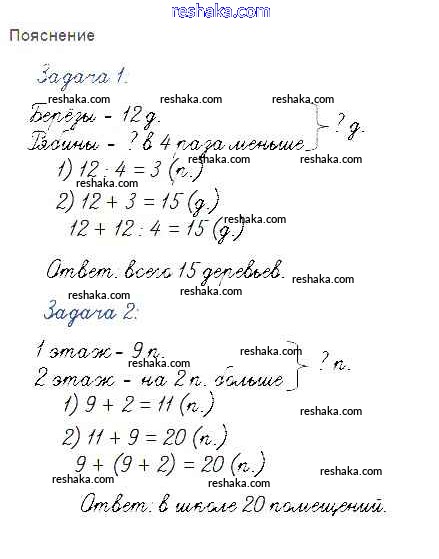 reshaka.com
Пояснение
Задача 1:
reshaka.com reshaka.com reshaka.com
Берёзы - 12 д.
Рябины - ? в 4 раза меньше } ? д.
reshaka.com reshaka.com
1) 12 : 4 = 3 (п.)
reshaka.com
2) 12 + 3 = 15 (д.)
reshaka.com
12 + 12 : 4 = 15 (д.)
Ответ: всего 15 деревьев.
reshaka.com
reshaka.com reshaka.com
Задача 2:
reshaka.com
1 этаж - 9 п.
reshaka.com reshaka.com
2 этаж - на 2 п. больше } ? п.
reshaka.com
1) 9 + 2 = 11 (п.)
reshaka.com
2) 11 + 9 = 20 (п.)
9 + (9 + 2) = 20 (п.)
reshaka.com reshaka.com reshaka.com
Ответ: в школе 20 помещений.